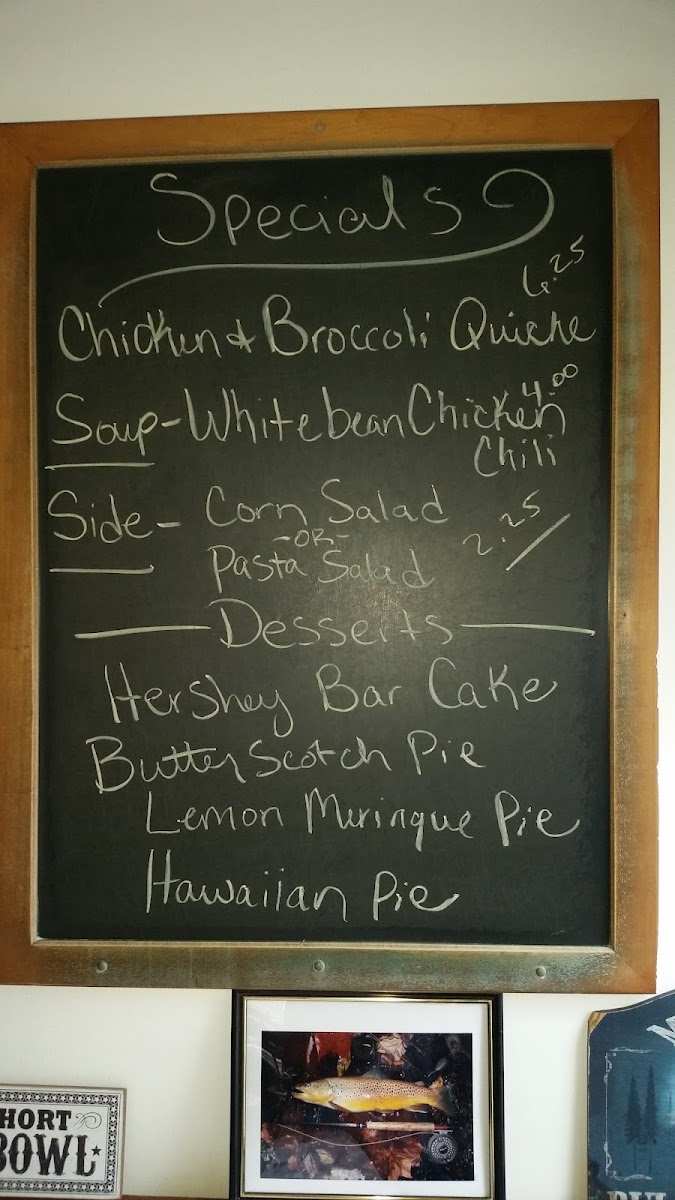 Specials
6.25
Chicken & Broccoli Quiche
4.00
Soup - White bean Chicken
Chili
Side - Corn Salad
-OR-
2.25
Pasta Salad
Desserts
Hershey Bar Cake
Butter Scotch Pie
Lemon Meringue Pie
Hawaiian Pie
HORT
BOWL